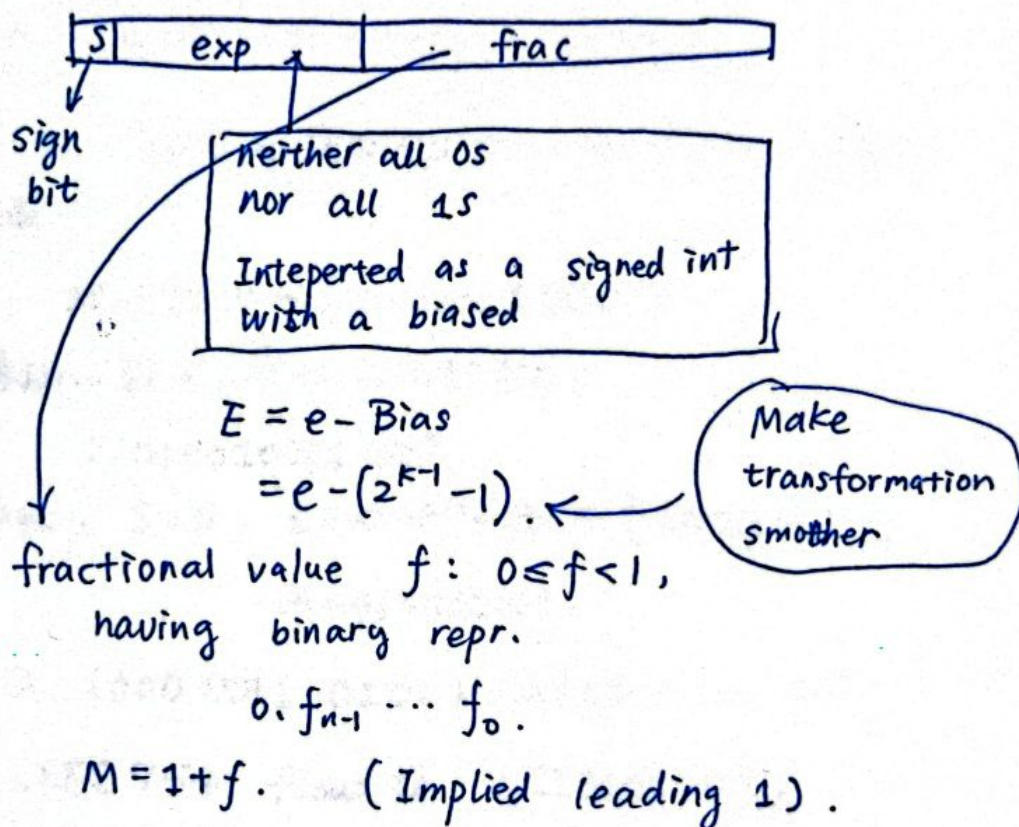 S exp frac
sign
bit
neither all 0s
nor all 1s
Inteperted as a signed int
with a biased
E = e - Bias
= e - (2^{k-1} - 1).
Make
transformation
smother
fractional value f: 0 ≤ f < 1,
having binary repr.
0. f_{n-1} ··· f_0.
M = 1 + f. (Implied leading 1).